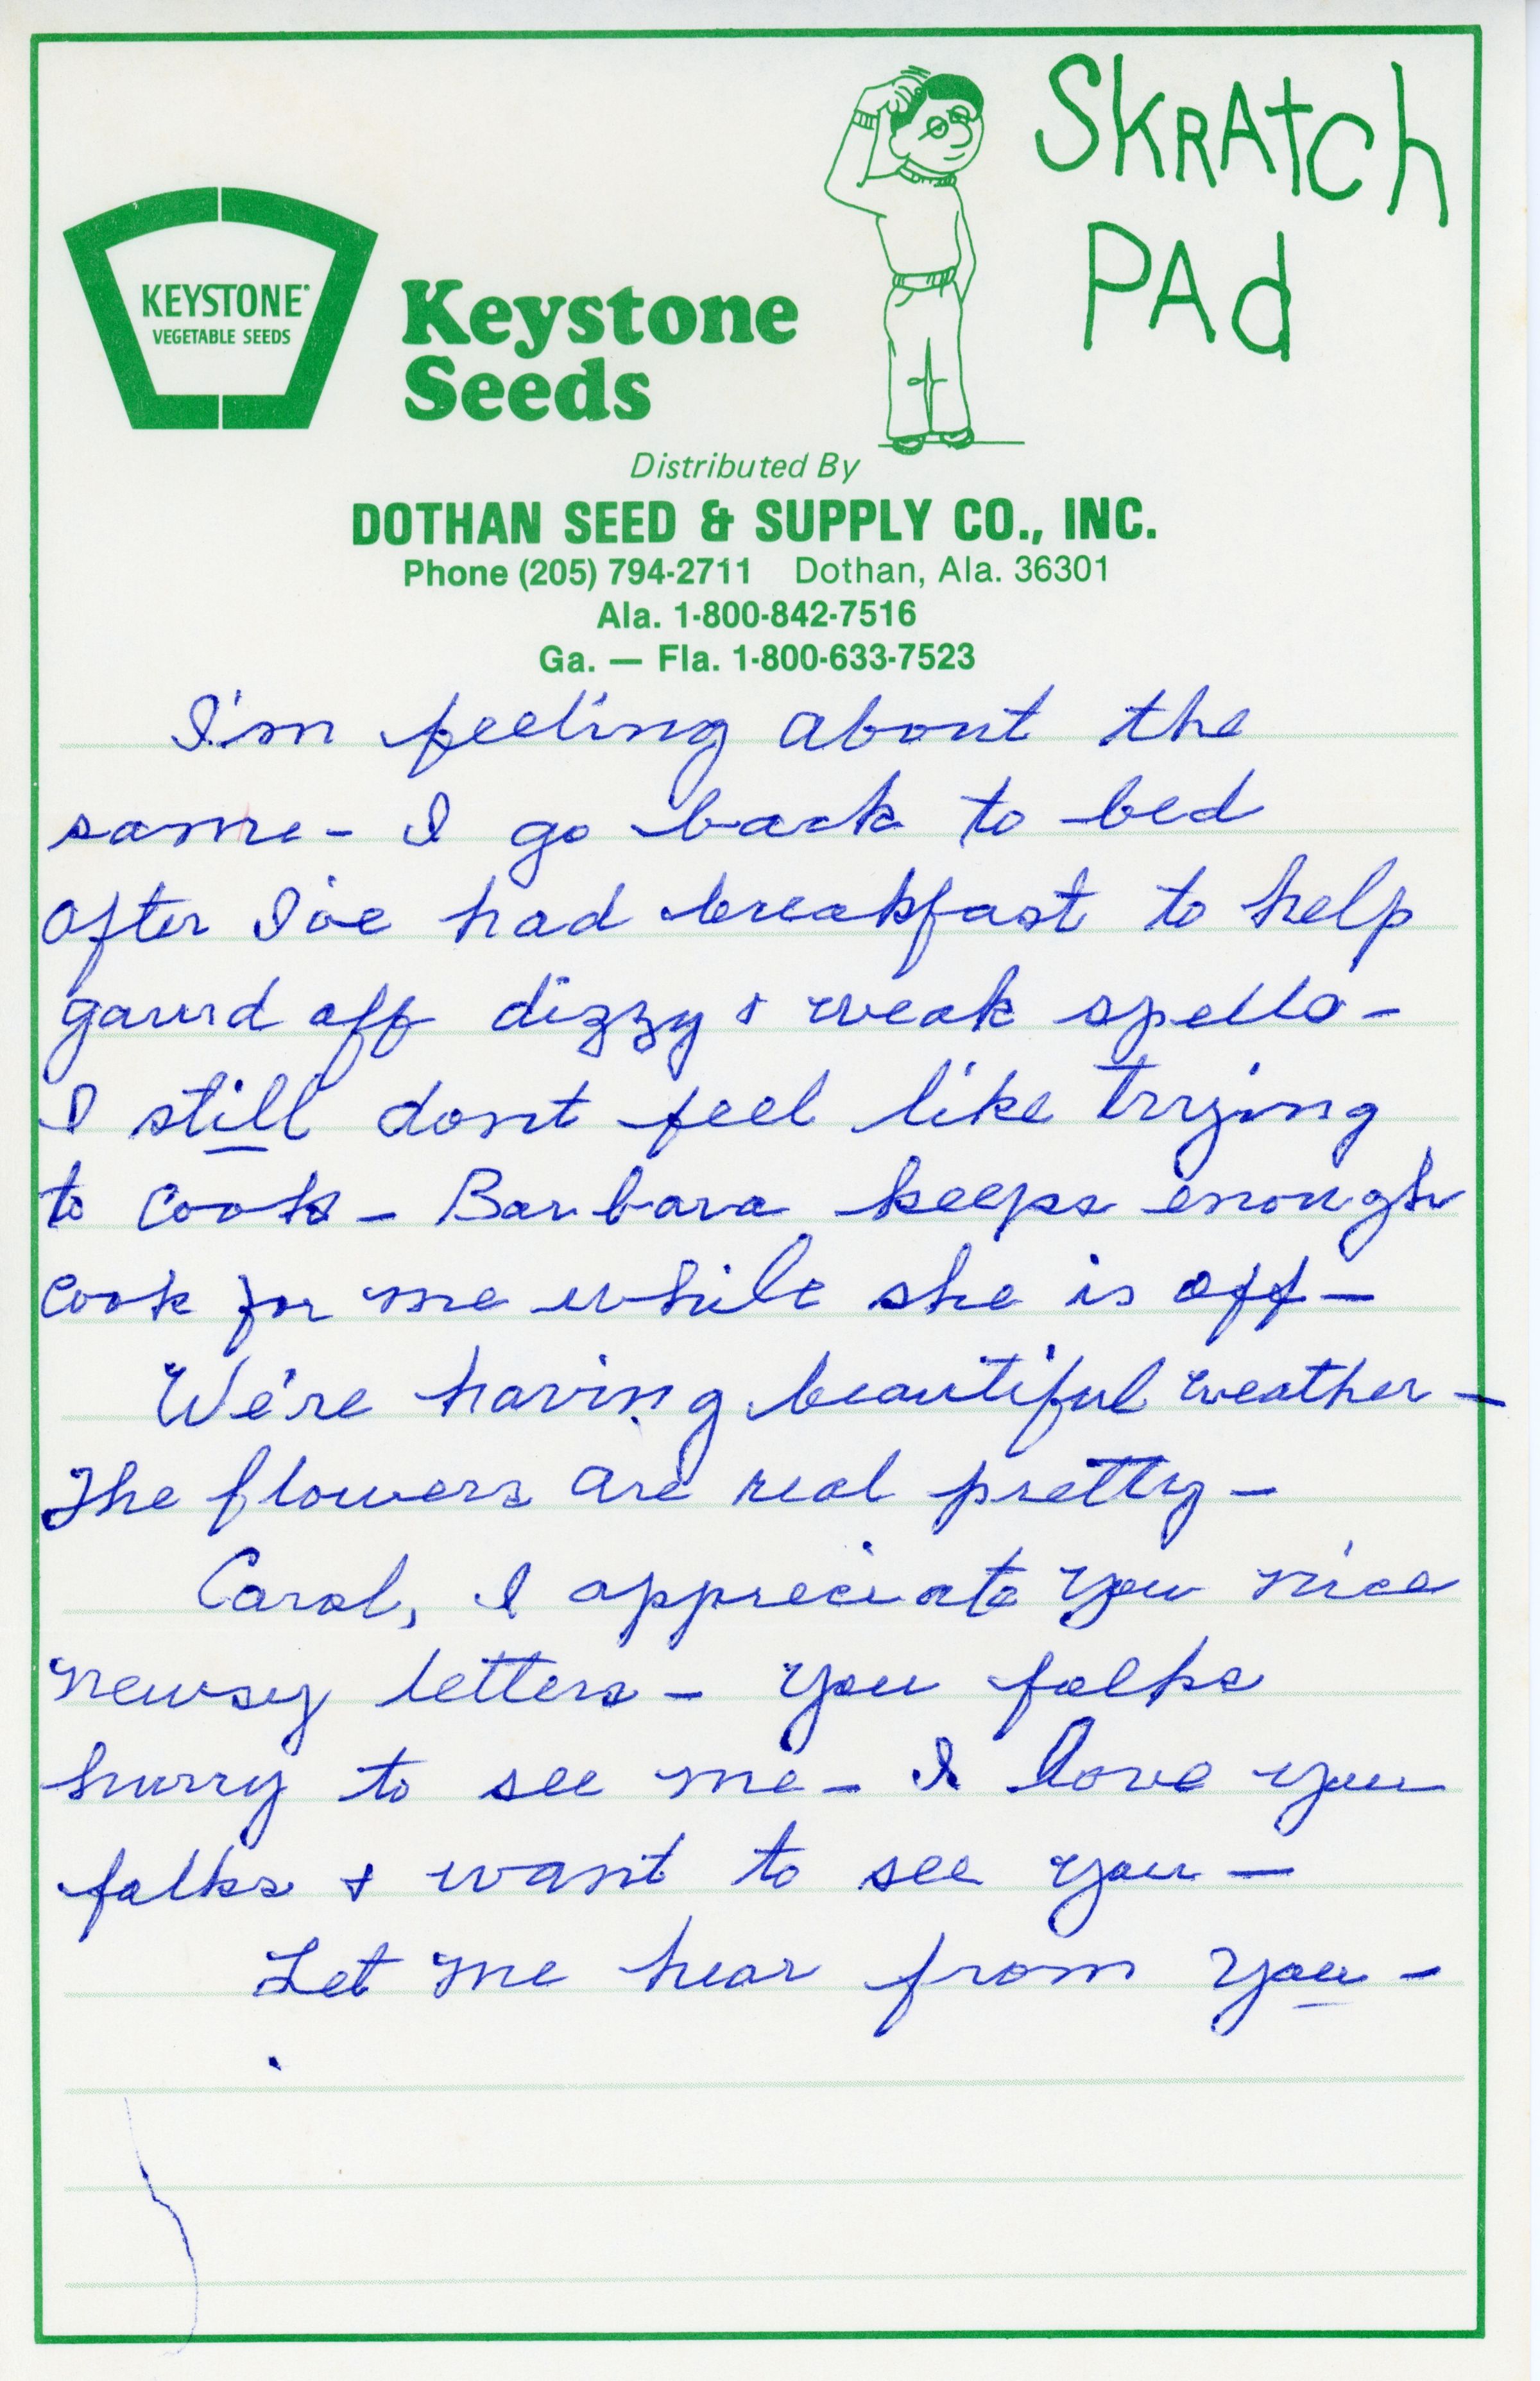 SKRAtch
PAd
KEYSTONE
VEGETABLE SEEDS
Keystone
Seeds
Distributed By
DOTHAN SEED & SUPPLY CO., INC.
Phone (205) 794-2711 Dothan, Ala. 36301
Ala. 1-800-842-7516
Ga. — Fla. 1-800-633-7523
I'm feeling about the
same - I go back to bed
after I've had breakfast to help
gaurd off dizzy & weak spells -
I still dont feel like trying
to cook - Barbara keeps enough
cook for me while she is off -
We're having beautiful weather -
The flowers are real pretty -
Carol, I appreciate you nice
newsy letters - you folks
hurry to see me - I love you
folks & want to see you -
Let me hear from you -